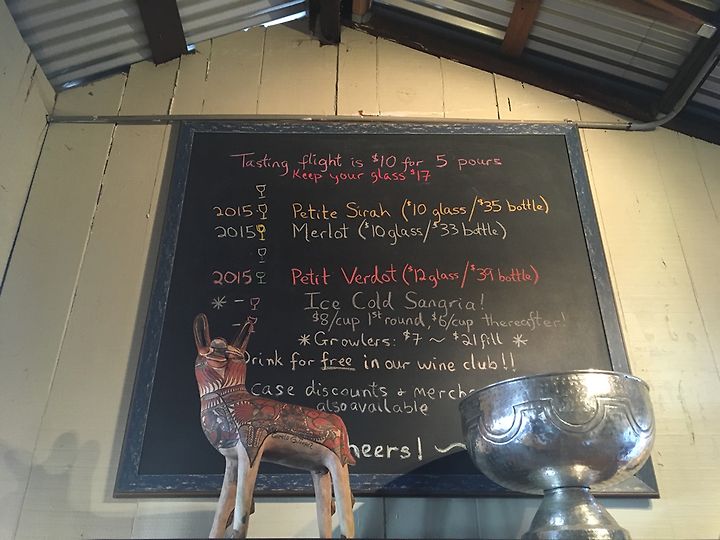 Tasting flight is $10 for 5 pours
Keep your glass $17
2015 Petite Sirah ($10 glass/$35 bottle)
2015 Merlot ($10 glass/$33 bottle)
2015 Petit Verdot ($12 glass/$39 bottle)
* - Ice Cold Sangria!
- $8/cup 1st round, $6/cup thereafter!
* Growlers: $7 ~ $21 fill *
Drink for free in our wine club!!
case discounts +
also available
heers! ~